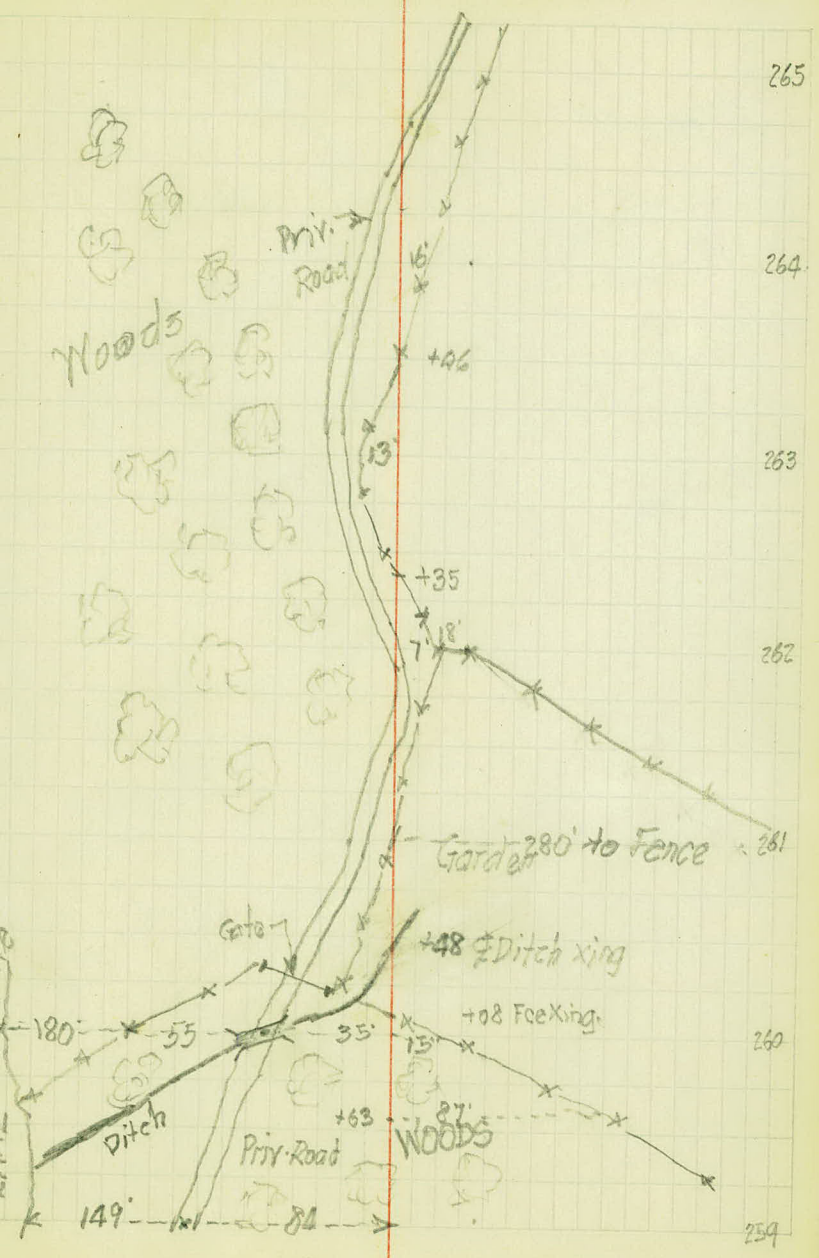 265
Priv.
Road
16'
264
Woods
+46
13'
263
+35
7' 18'
262
Garden 280' to Fence
261
Gate
+48 ⅊ Ditch xing
+08 Fce Xing.
180' 55 35' 15'
260
Ditch
+63 87'
WOODS
Priv. Road
149' 84
259